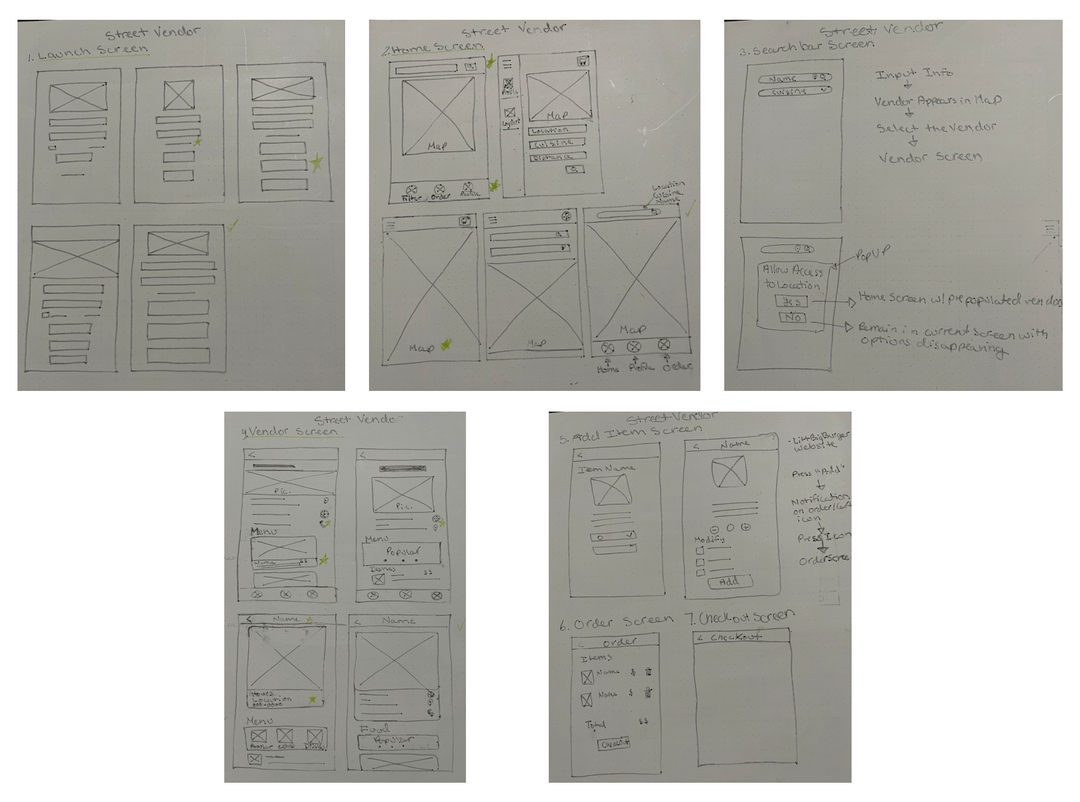 Street Vendor
1. Launch Screen
Street Vendor
2. Home Screen
Map
Filter Order Profile
Profile
Map
Location
Cuisine
Distance
Location
Cuisine
Name
Map
Map
Map
Home Profile Order
Street Vendor
3. Search bar Screen
Name
Cuisine
Input Info
Vendor Appears in Map
Select the Vendor
Vendor Screen
PopUp
Allow Access
to Location
Yes
No
Home Screen w/ prepopulated
Remain in current screen with
options disappearing
Street
4. Vendor Screen
<
Pic.
Menu
$$
<
Pic.
Menu
Popular
$$
< Name
Hours
Location
Menu
Popular
< Name
Food
Popular
Street Vendor
5. Add Item Screen
<
Item Name
< Name
Modify
Add
website
Press "Add"
Notification
on order/cart
icon
Press Icon
6. Order Screen
< Order
Items
Name $
Name $
Total $$
7. Checkout Screen
< Checkout